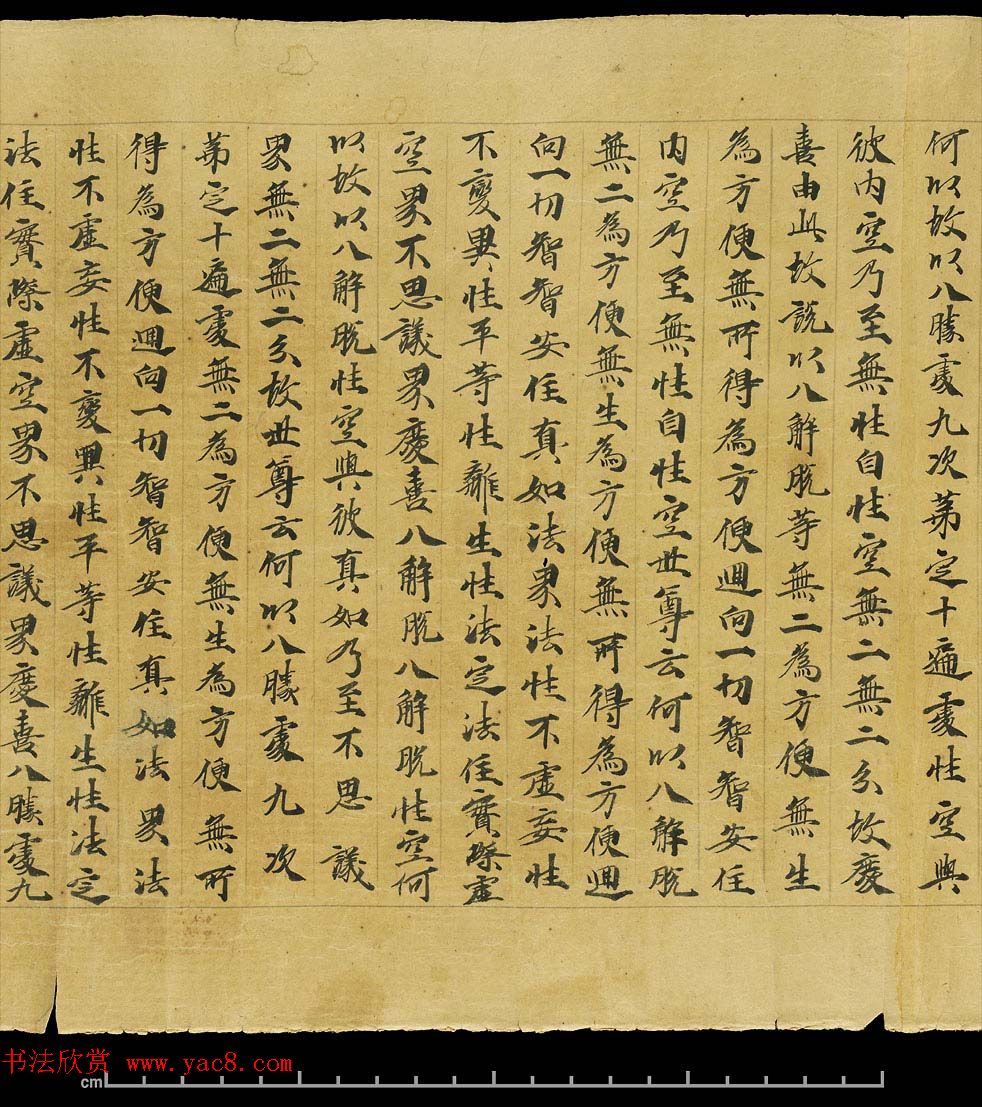 何以故以八勝處九次第定十遍處性空與
彼內空乃至無性自性空無二無二分故慶
喜由此故說以八解脫等無二為方便無生
為方便無所得為方便迴向一切智智安住
內空乃至無性自性空世尊云何以八解脫
無二為方便無生為方便無所得為方便迴
向一切智智安住真如法界法性不虛妄性
不變異性平等性離生性法定法住實際虛
空界不思議界慶喜八解脫八解脫性空何
以故以八解脫性空與彼真如乃至不思議
界無二無二分故世尊云何以八勝處九次
第定十遍處無二為方便無生為方便無所
得為方便迴向一切智智安住真如法界法
性不虛妄性不變異性平等性離生性法定
法住實際虛空界不思議界慶喜八勝處九
书法欣赏 www.yac8.com
cm